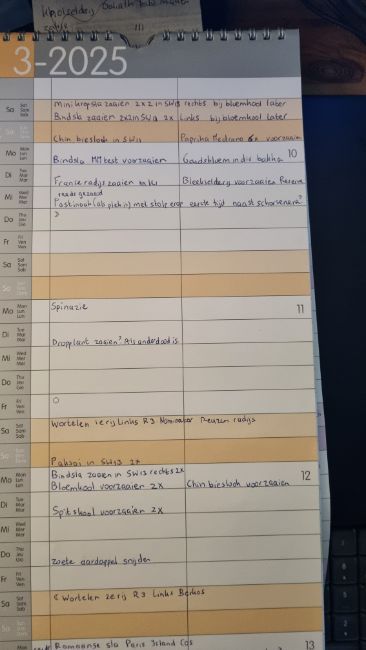 3-2025
Sa Sat Sam Sab
Minikropsla zaaien 2x2 in SW13 rechts bij bloemkool later
Bindsla zaaien 2x2 in SW13 2x Links bij bloemkool later
Chin bieslook in SW13 Paprika voorzaaien
Mo Mon Lun Lun
Bindsla MM test voorzaaien Goudsbloem in div bakken 10
Di Tue Mar Mar
Franse radijs zaaien Bleekselderij voorzaaien
Mi Wed Mer Mer
reeds gezaaid
Pastinaak (ab plek in) met stolp erop eerste tijd naast schorseneren?
Do Thu Jeu Gio
Fr Fri Ven Ven
Sa Sat Sam Sab
So
Mo Mon Lun Lun
Spinazie 11
Di Tue Mar Mar
Dropplant zaaien? Als ander dood is
Mi Wed Mer Mer
Do Thu Jeu Gio
Fr Fri Ven Ven
Sa Sat Sam Sab
Wortelen rij Links R3 Reuzen radijs
Paksoi in SW13 2x
Mo Mon Lun Lun
Bindsla zaaien in SW13 rechts 2x 12
Bloemkool voorzaaien 2x Chin bieslook voorzaaien
Di Tue Mar Mar
Spitskool voorzaaien 2x
Mi Wed Mer Mer
Do Thu Jeu Gio
zoete aardappel snijden
Fr Fri Ven Ven
Sa Sat Sam Sab
Wortelen rij R3 Links
Mon
Romaanse sla Paris Island Cos 13